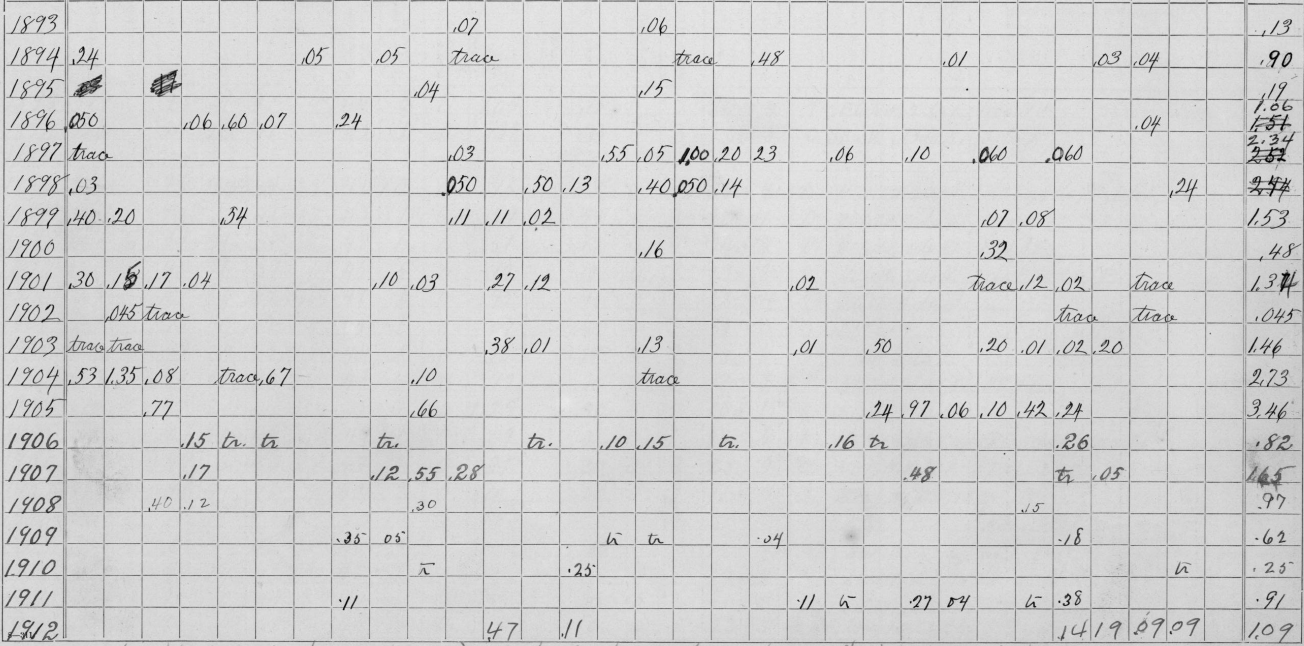 1893 .07 .06 .13
1894 .24 .05 .05 trace trace .48 .01 .03 .04 .90
1895 .04 .15 .19
1896 .050 .06 .60 .07 .24 .04 1.06 1.51
1897 trace .03 .55 .05 1.00 .20 23 .06 .10 .060 .060 2.34
1898 .03 .050 .50 .13 .40 .050 .14 .24
1899 .40 .20 .54 .11 .11 .02 .07 .08 1.53
1900 .16 .32 .48
1901 .30 .17 .04 .10 .03 .27 .12 .02 trace .12 .02 trace
1902 .045 trace trace trace .045
1903 trace trace .38 .01 .13 .01 .50 .20 .01 .02 .20 1.46
1904 .53 1.35 .08 trace .67 .10 trace 2.73
1905 .77 .66 .24 .97 .06 .10 .42 .24 3.46
1906 .15 tr. tr tr. tr. .10 .15 tr. .16 tr .26 .82
1907 .17 .12 .55 .28 .48 tr .05 1.65
1908 .40 .12 .30 .15 .97
1909 .35 05 tr tr .04 .18 .62
1910 tr .25 tr .25
1911 .11 .11 tr .27 04 tr .38 .91
1912 .47 .11 .14 19 .09 .09 1.09